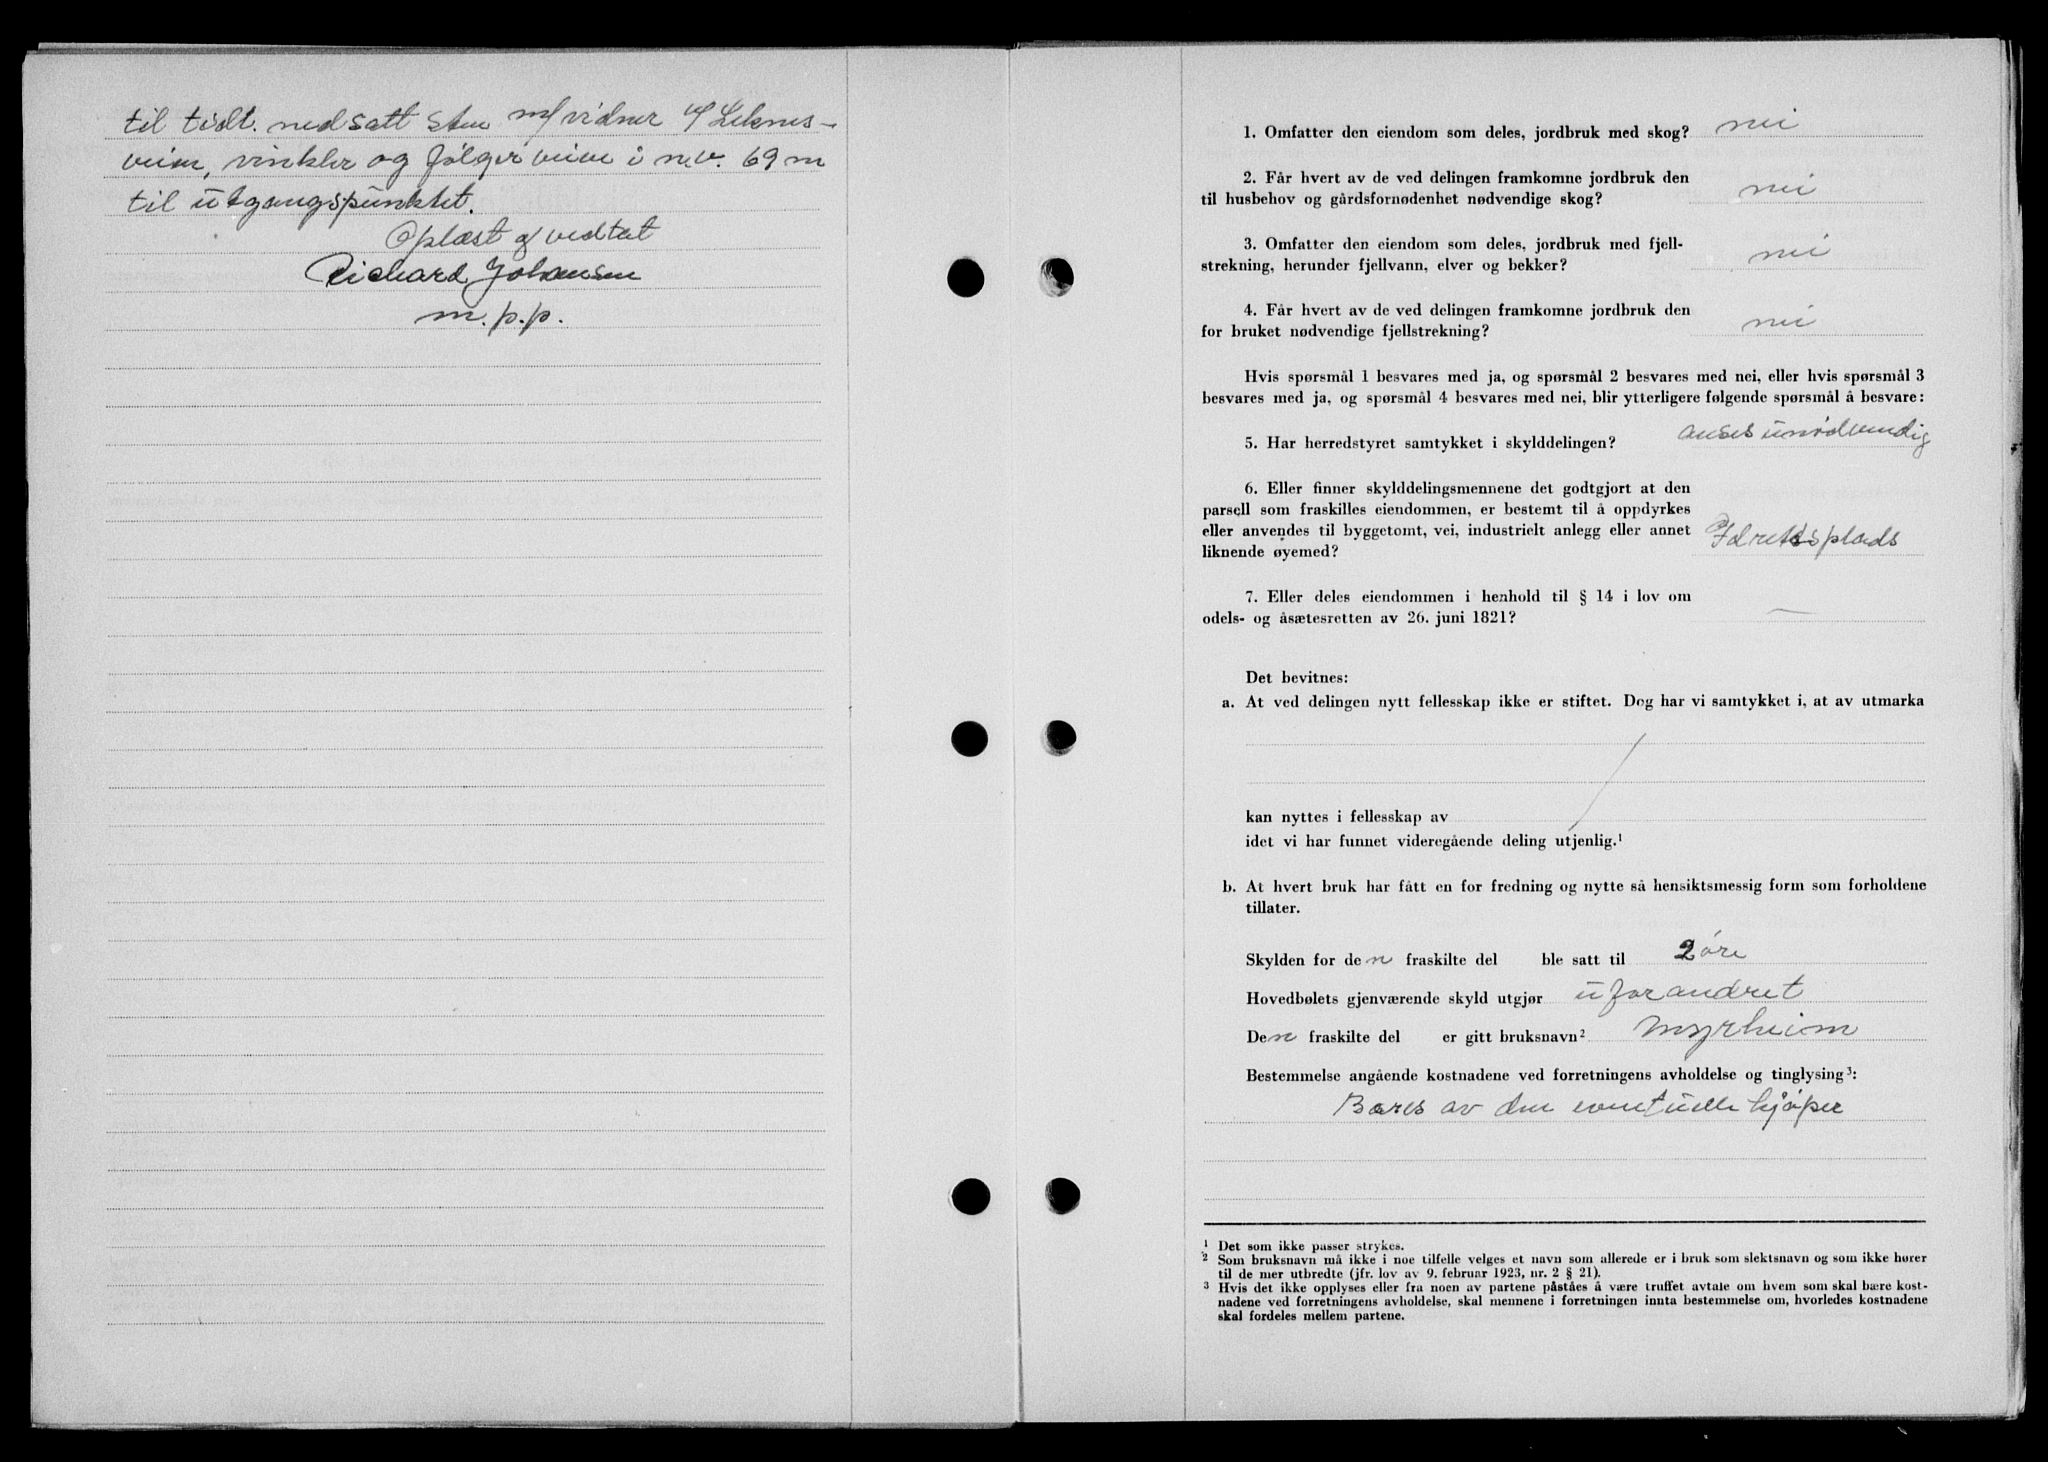 til tidl. nedsatt sten m/vidner v/ Leknes-
veien, vinkler og følger veien i n.v. 69 m
til utgangspunktet.
Oplæst og vedtat
Richard Johansen
m.p.p.
1. Omfatter den eiendom som deles, jordbruk med skog? nei
2. Får hvert av de ved delingen framkomne jordbruk den
til husbehov og gårdsfornødenhet nødvendige skog? nei
3. Omfatter den eiendom som deles, jordbruk med fjell-
strekning, herunder fjellvann, elver og bekker? nei
4. Får hvert av de ved delingen framkomne jordbruk den
for bruket nødvendige fjellstrekning? nei
Hvis spørsmål 1 besvares med ja, og spørsmål 2 besvares med nei, eller hvis spørsmål 3
besvares med ja, og spørsmål 4 besvares med nei, blir ytterligere følgende spørsmål å besvare:
5. Har herredstyret samtykket i skylddelingen? anses unødvendig
6. Eller finner skylddelingsmennene det godtgjort at den
parsell som fraskilles eiendommen, er bestemt til å oppdyrkes
eller anvendes til byggetomt, vei, industrielt anlegg eller annet
liknende øyemed? Idretsplads
7. Eller deles eiendommen i henhold til § 14 i lov om
odels- og åsætesretten av 26. juni 1821? —
Det bevitnes:
a. At ved delingen nytt fellesskap ikke er stiftet. Dog har vi samtykket i, at av utmarka
kan nyttes i fellesskap av
idet vi har funnet videregående deling utjenlig.¹
b. At hvert bruk har fått en for fredning og nytte så hensiktsmessig form som forholdene
tillater.
Skylden for den fraskilte del ble satt til 2 øre
Hovedbølets gjenværende skyld utgjør uforandret
Den fraskilte del er gitt bruksnavn² Myrheim
Bestemmelse angående kostnadene ved forretningens avholdelse og tinglysing³:
Bæres av den eventuelle kjøper
¹ Det som ikke passer strykes.
² Som bruksnavn må ikke i noe tilfelle velges et navn som allerede er i bruk som slektsnavn og som ikke hører
til de mer utbredte (jfr. lov av 9. februar 1923, nr. 2 § 21).
³ Hvis det ikke opplyses eller fra noen av partene påståes å være truffet avtale om hvem som skal bære kost-
nadene ved forretningens avholdelse, skal mennene i forretningen innta bestemmelse om, hvorledes kostnadene
skal fordeles mellem partene.